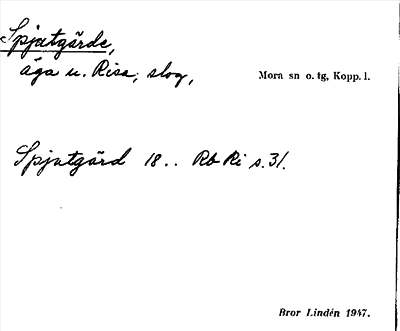 Spjutgärde,
äga u. Risa; slog,
Mora sn o. tg, Kopp. l.
Spjutgärd 18.. Rb Ri s. 31.
Bror Lindén 1947.